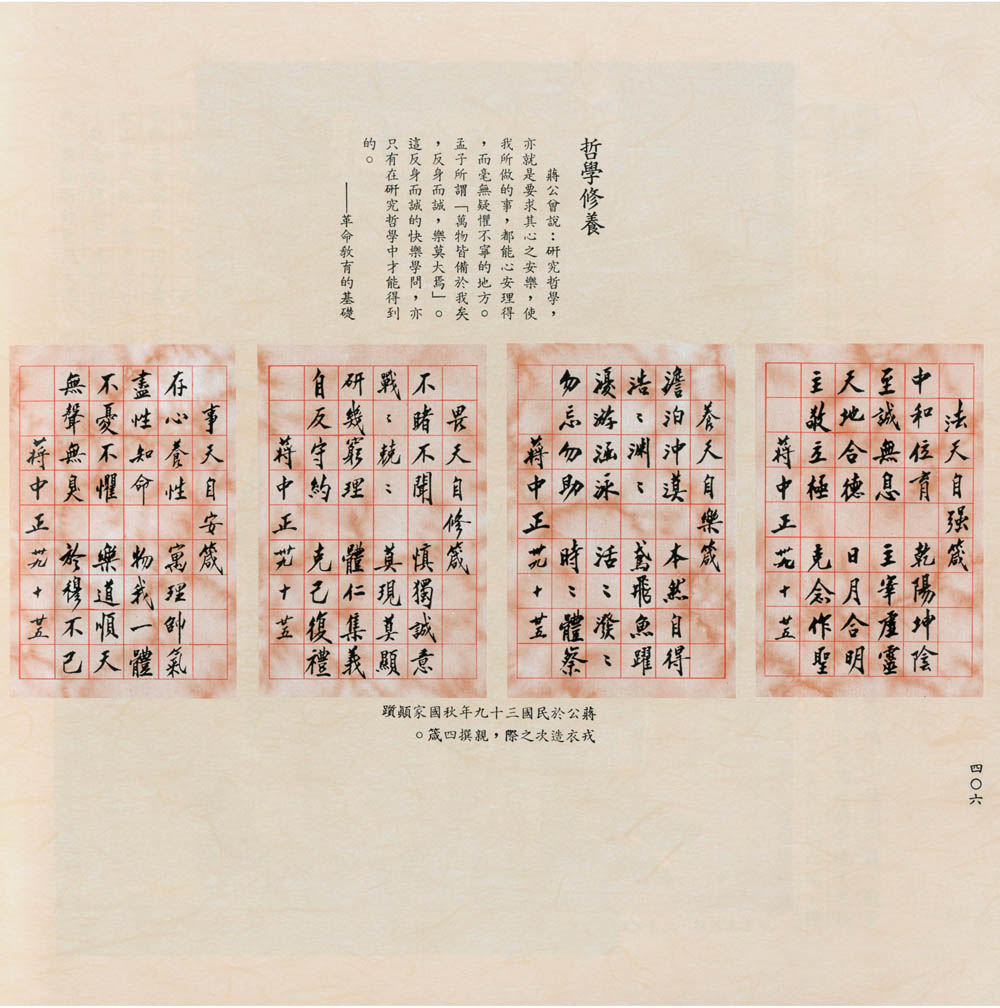 哲學修養
蔣公曾說：研究哲學，
亦就是要求其心之安樂，使
我所做的事，都能心安理得
，而毫無疑懼不寧的地方。
孟子所謂「萬物皆備於我矣
，反身而誠，樂莫大焉」。
這反身而誠的快樂學問，亦
只有在研究哲學中才能得到
的。
——革命教育的基礎
法天自强箴
中和位育 乾陽坤陰
至誠無息 主宰虛靈
天地合德 日月合明
主敬立極 克念作聖
蔣中正 卅九 十 廿五
養天自樂箴
澹泊沖漠 本然自得
浩々淵々 鳶飛魚躍
優游涵泳 活々潑々
勿忘勿助 時々體察
蔣中正 卅九 十 廿五
畏天自修箴
不睹不聞 慎獨誠意
戰々兢々 莫現莫顯
研幾窮理 體仁集義
自反守約 克己復禮
蔣中正 卅九 十 廿五
事天自安箴
存心養性 寓理帥氣
盡性知命 物我一體
不憂不懼 樂道順天
無聲無臭 於穆不已
蔣中正 卅九 十 廿五
蔣公於民國三十九年秋國家顛躓
戎衣造次之際，親撰四箴。
四〇六